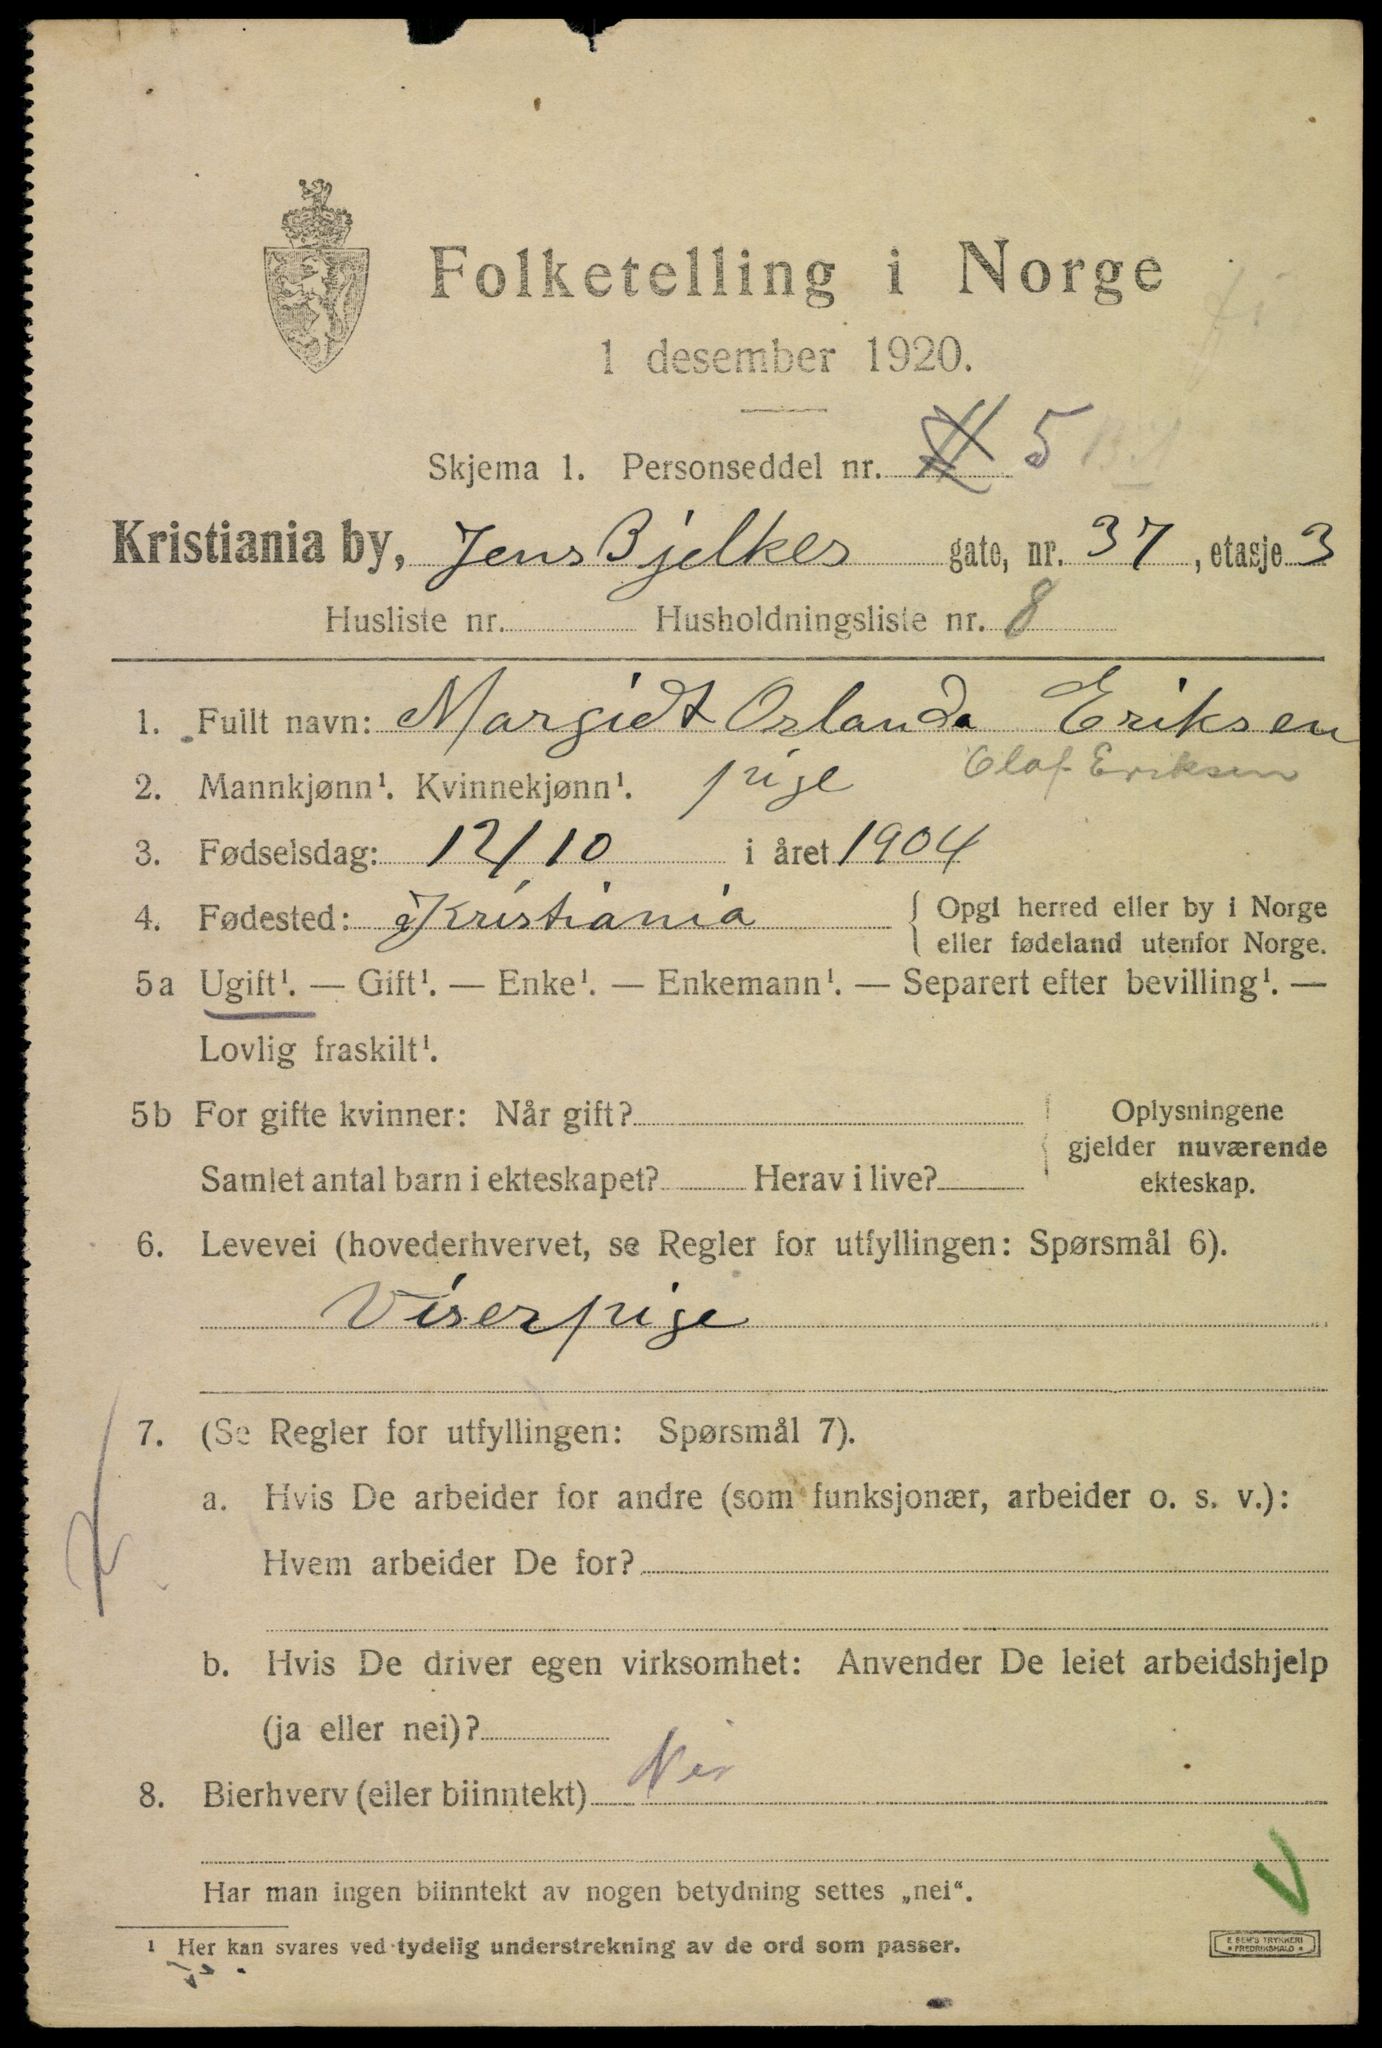 Folketelling i Norge
1 desember 1920.
Skjema 1. Personseddel nr. 5
Kristiania by, Jens Bjelkes gate, nr. 37, etasje 3
Husliste nr. Husholdningsliste nr. 8
1. Fullt navn: Margidt Orlanda Eriksen
Olaf Eriksen
2. Mannkjønn¹. Kvinnekjønn¹. pige
3. Fødselsdag: 12/10 i året 1904
4. Fødested: Kristiania { Opgi herred eller by i Norge
eller fødeland utenfor Norge.
5a Ugift¹. — Gift¹. — Enke¹. — Enkemann¹. — Separert efter bevilling¹. —
Lovlig fraskilt¹.
5b For gifte kvinner: Når gift? { Oplysningene
gjelder nuværende
Samlet antal barn i ekteskapet? Herav i live? ekteskap.
6. Levevei (hovederhvervet, se Regler for utfyllingen: Spørsmål 6).
Viserpige
7. (Se Regler for utfyllingen: Spørsmål 7).
a. Hvis De arbeider for andre (som funksjonær, arbeider o. s. v.):
Hvem arbeider De for?
b. Hvis De driver egen virksomhet: Anvender De leiet arbeidshjelp
(ja eller nei)?
8. Bierhverv (eller biinntekt) Nei
Har man ingen biinntekt av nogen betydning settes „nei“.
¹ Her kan svares ved tydelig understrekning av de ord som passer.
E SEM'S TRYKKERI
* FREDRIKSHALD *